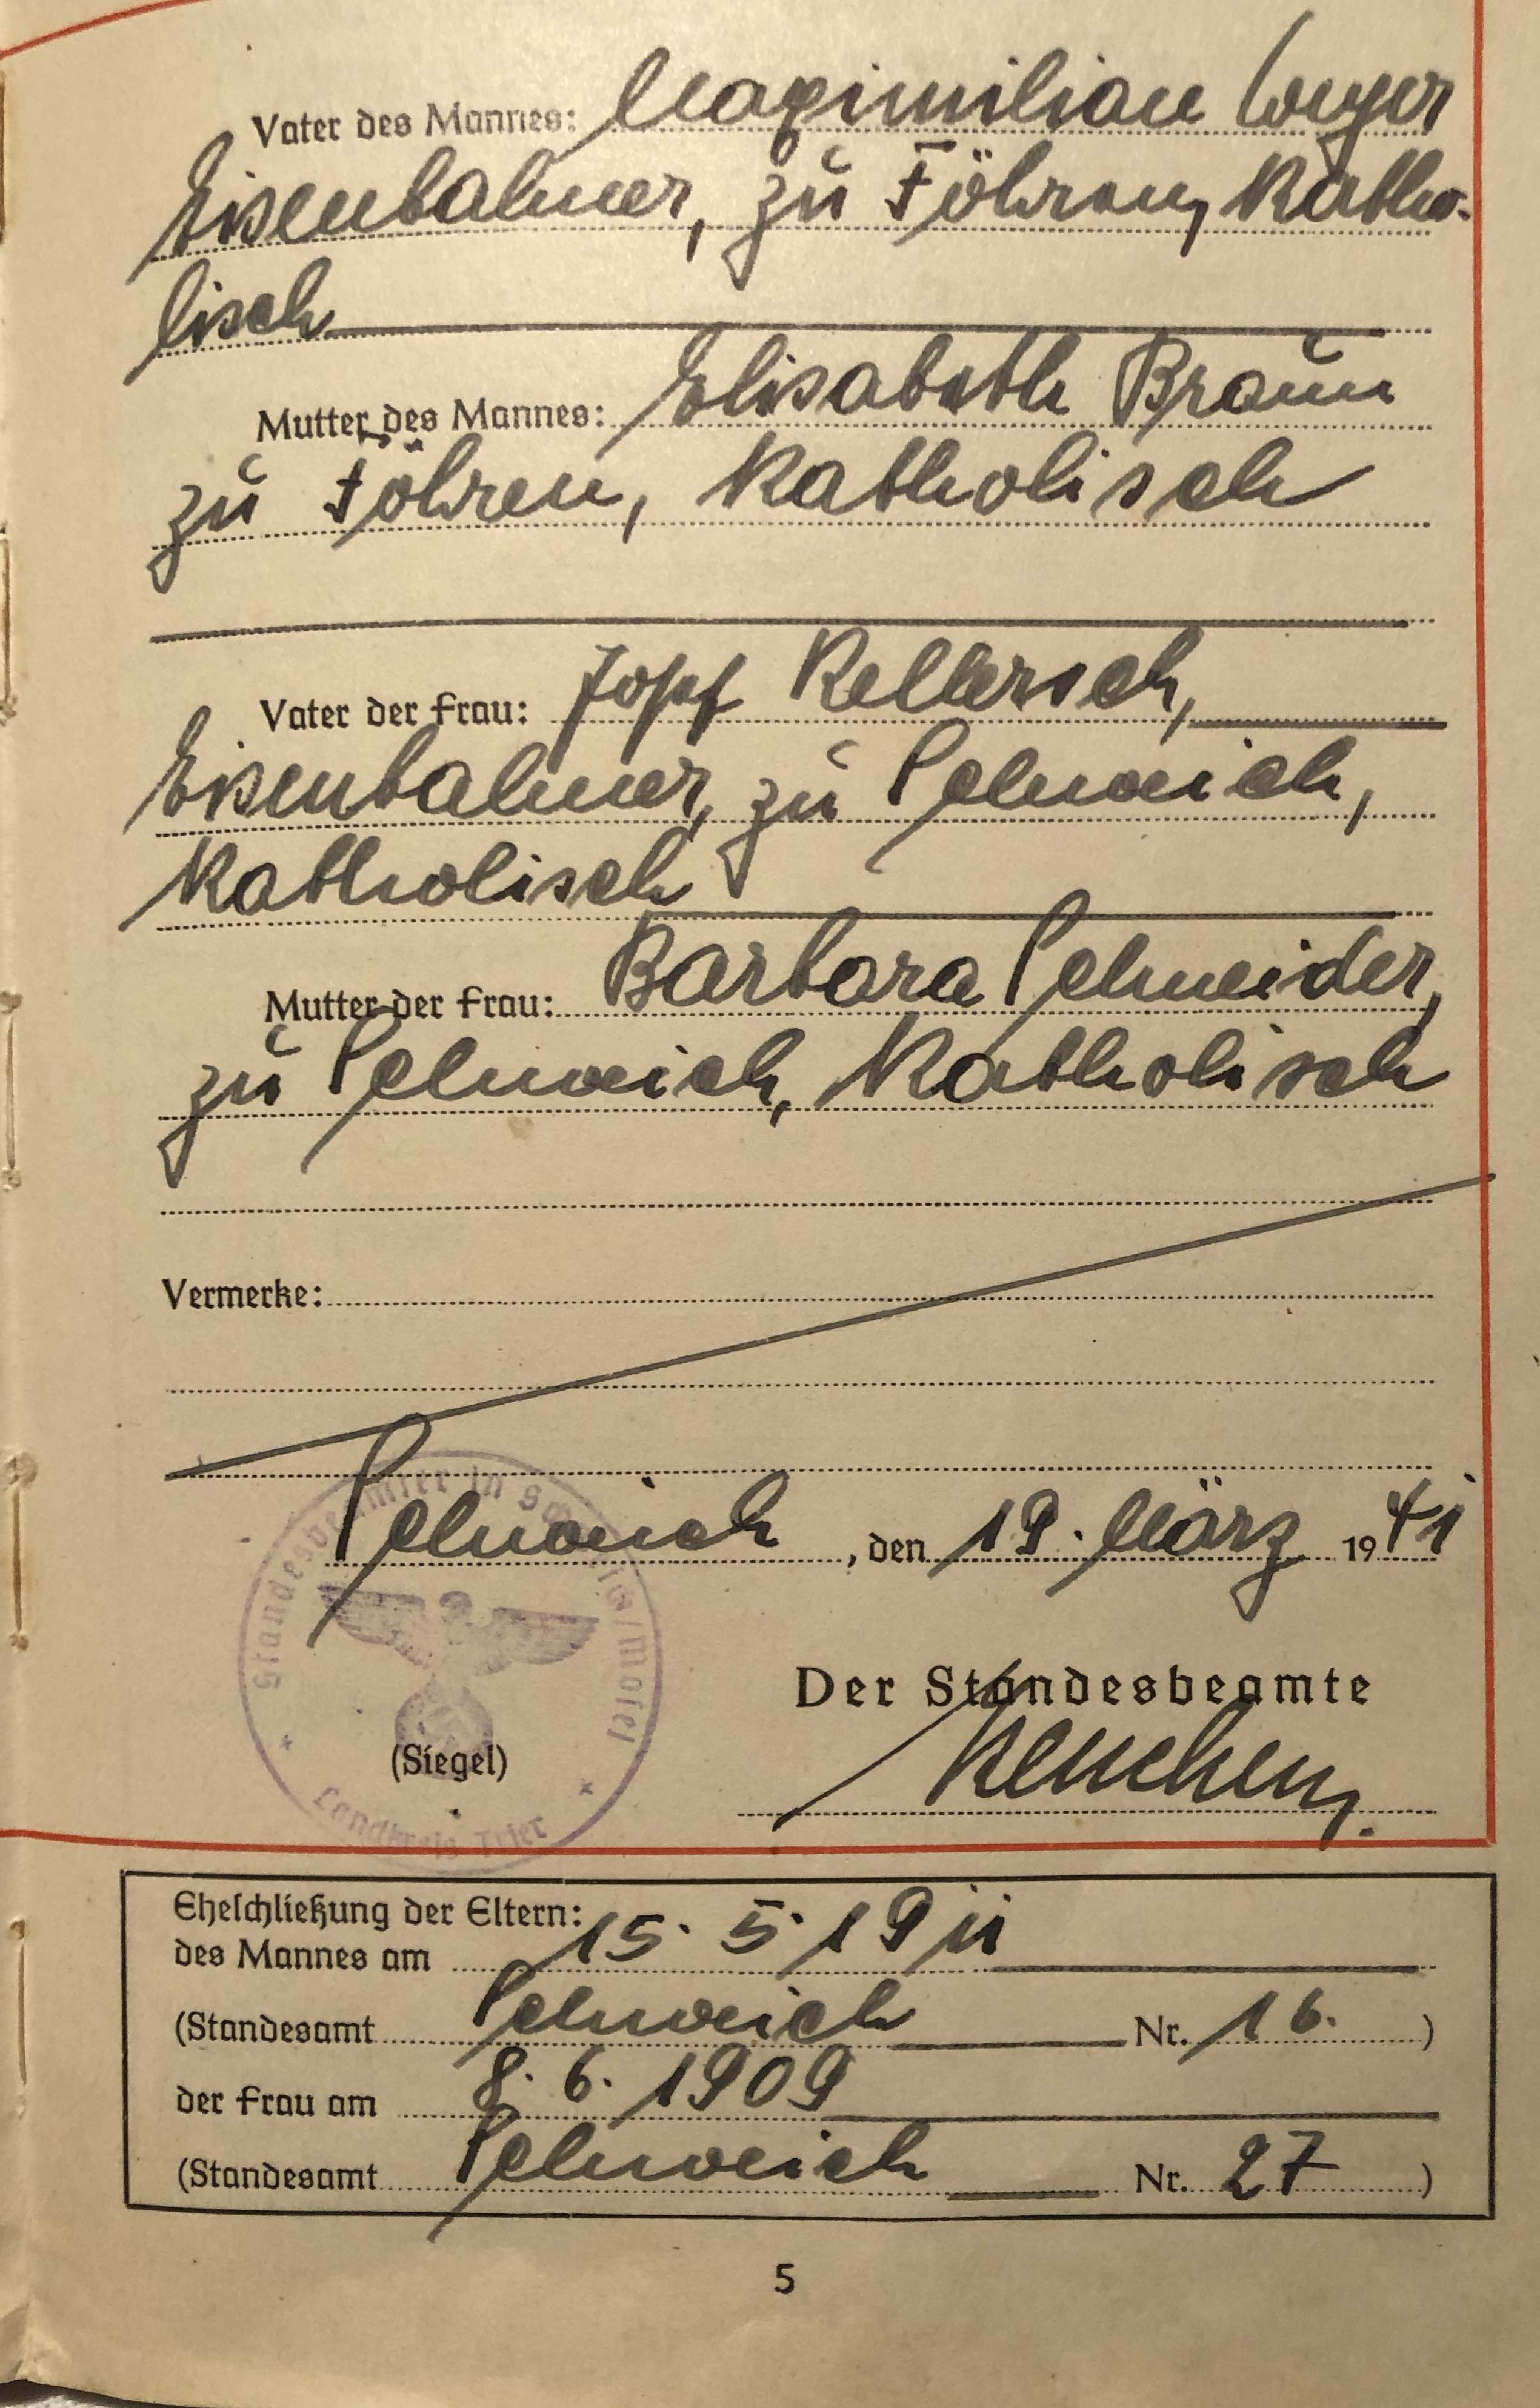 Vater des Mannes: Maximilian
Eisenbahner, zu Föhren, Katho-
lisch
Mutter des Mannes: Elisabeth Braun
zu Föhren, Katholisch
Vater der Frau: Josef Kellersch,
Eisenbahner, zu Schweich,
Katholisch
Mutter der Frau: Barbara Schneider,
zu Schweich, Katholisch
Vermerke:
Schweich, den 19. März 1941
Standesbeamter in Schweich/Mosel
Der Standesbeamte
(Siegel)
Landkreis Trier
Eheschließung der Eltern:
des Mannes am 15. 5. 1911
(Standesamt Schweich Nr. 16.)
der Frau am 8. 6. 1909
(Standesamt Schweich Nr. 27)
5